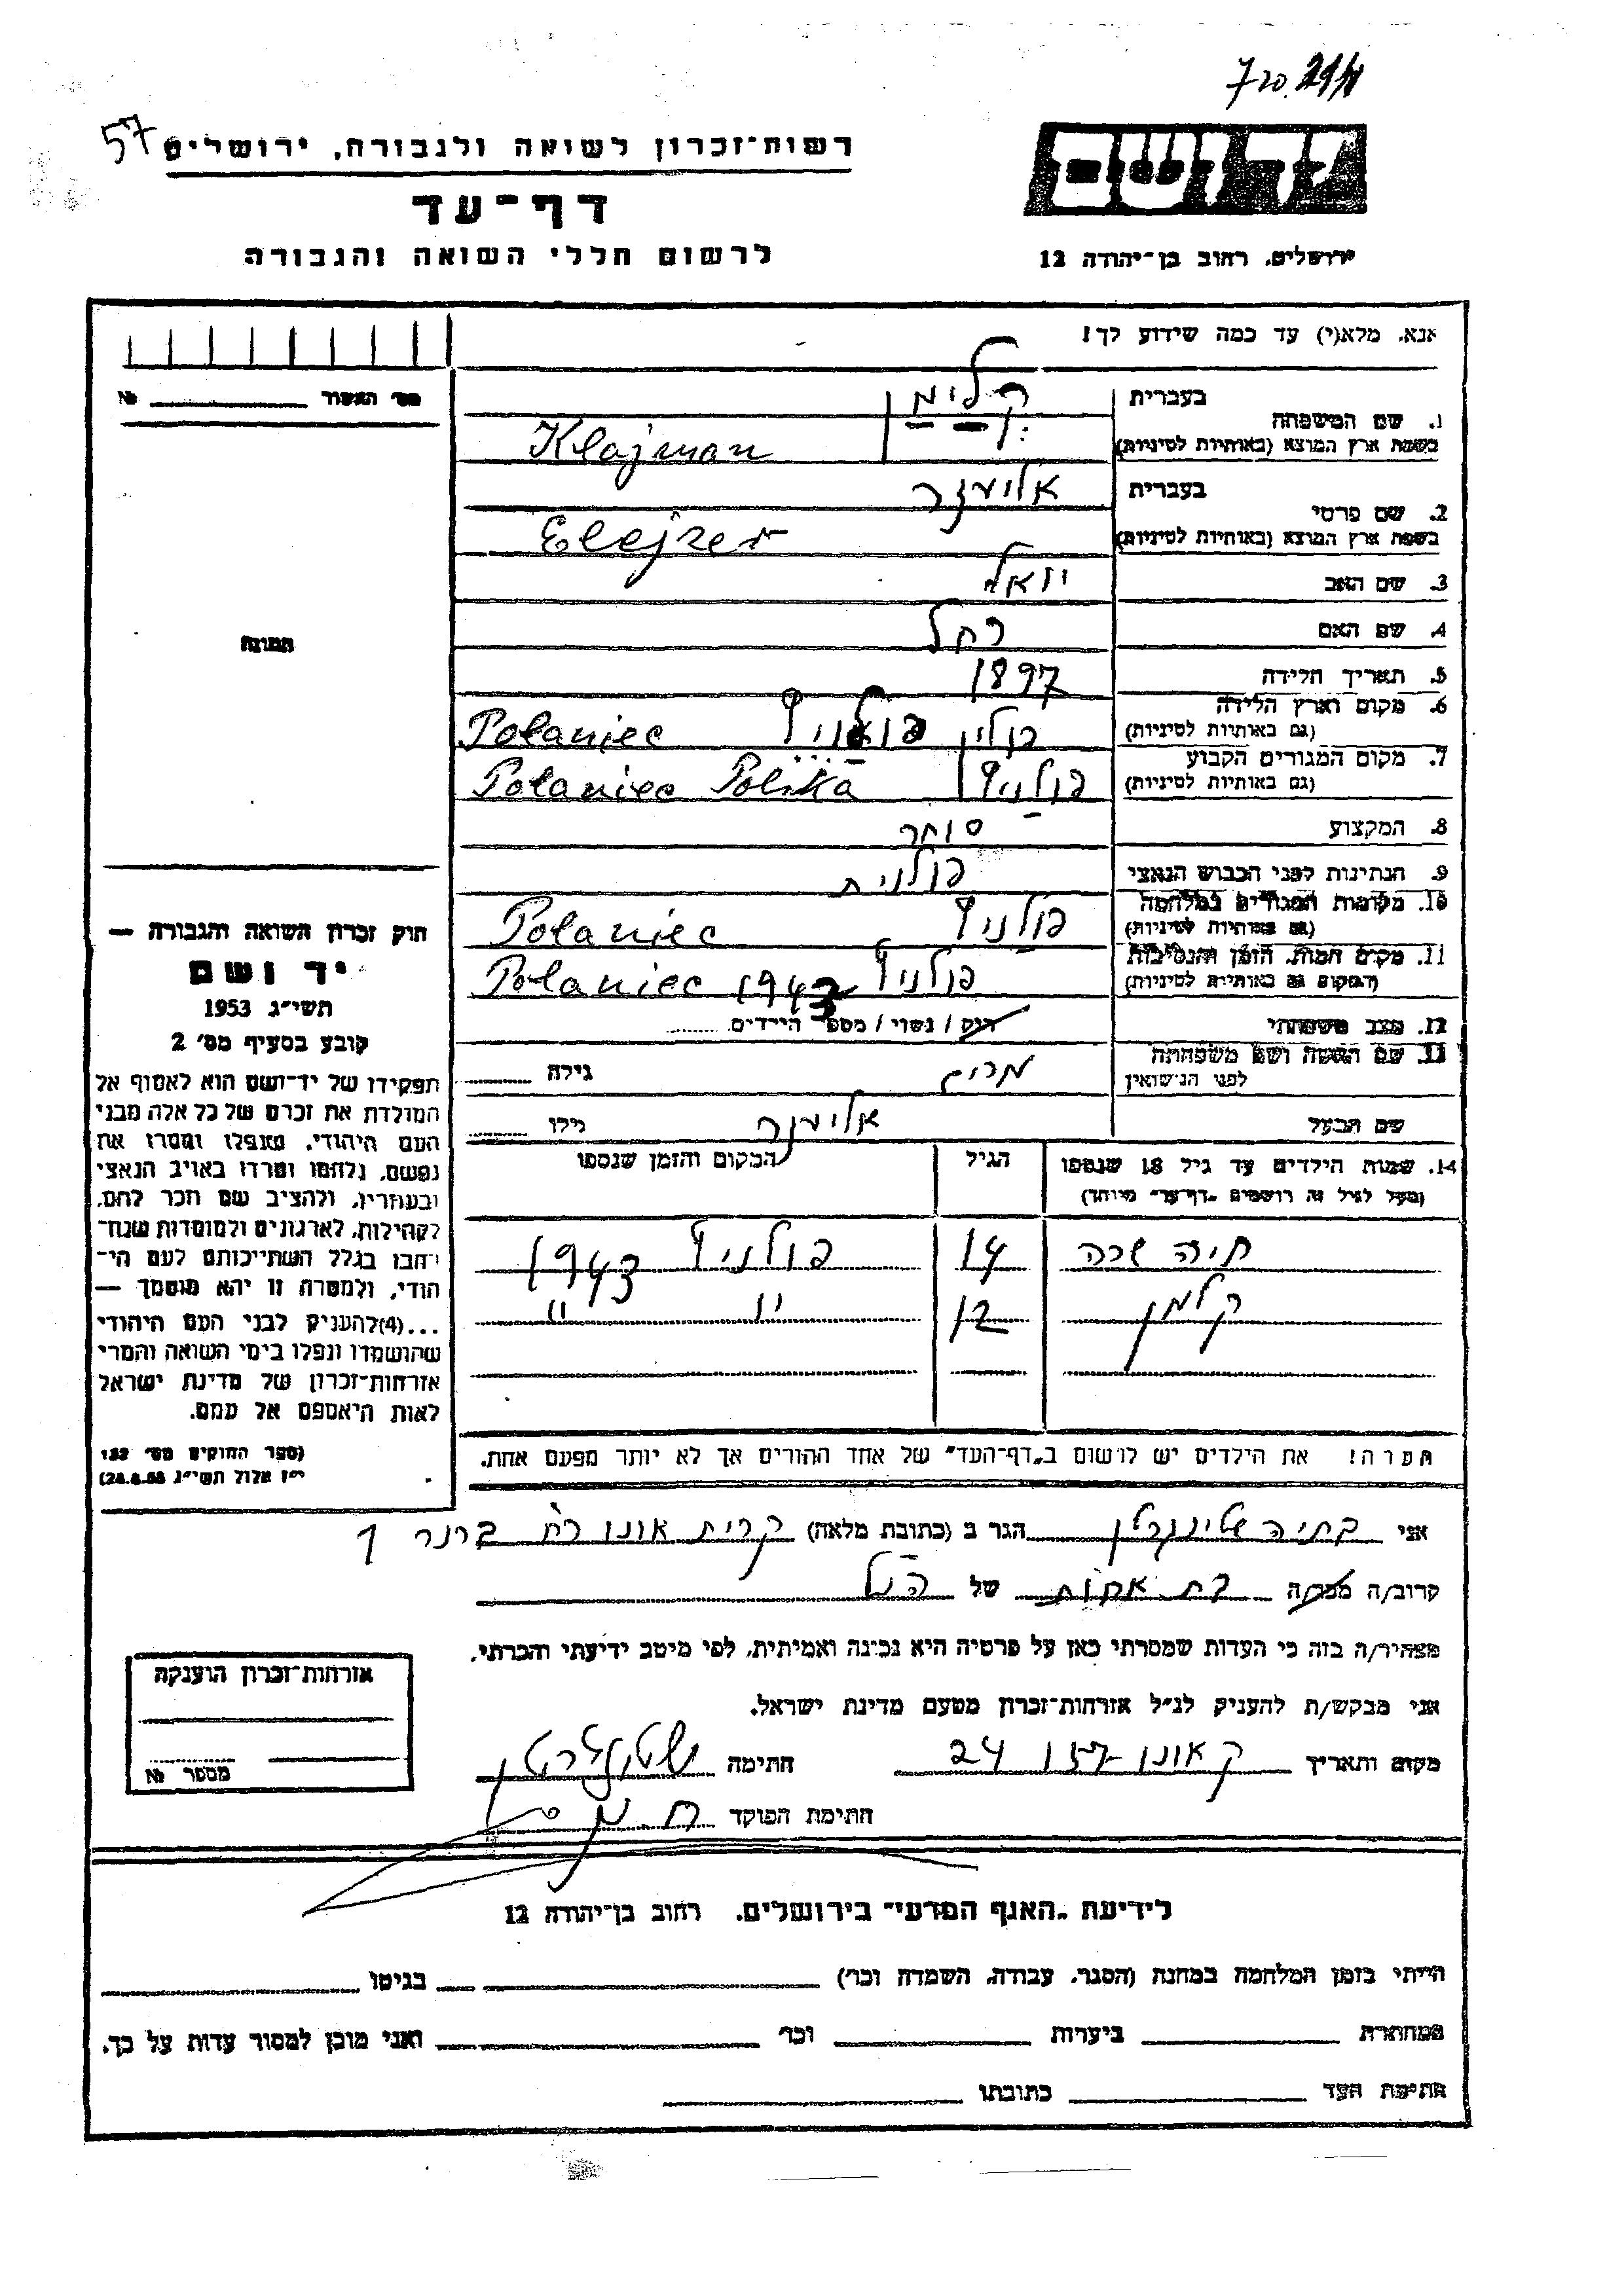 720.
57
רשות־זכרון לשואה ולגבורה, ירושלים
דף־עד
לרשום חללי השואה והגבורה
יד ושם
ירושלים, רחוב בן־יהודה 12
אנא, מלא(י) עד כמה שידוע לך!
מס׳ האשור №
1. שם המשפחה
בעברית קלימן
בשפת ארץ המוצא (באותיות לטיניות) Klajman
2. שם פרטי
בעברית אליעזר
בשפת ארץ המוצא (באותיות לטיניות) Elejzer
3. שם האב יואל
4. שם האם רחל
5. תאריך הלידה 1897
6. מקום וארץ הלידה (גם באותיות לטיניות) פולין פולניץ Polaniec
7. מקום המגורים הקבוע (גם באותיות לטיניות) פולניץ Polaniec Polska
8. המקצוע סוחר
9. הנתינות לפני הכבוש הנאצי פולנית
10. מקומות המגורים במלחמה (גם באותיות לטיניות) פולניץ Polaniec
11. מקום המות, הזמן והנסיבות (המקום גם באותיות לטיניות) פולניץ 1943 Polaniec
12. מצב משפחתי רוק / נשוי / מספר הילדים
13. שם האשה ושם משפחתה לפני הנישואין גילה
שם הבעל אליעזר גילו
14. שמות הילדים עד גיל 18 שנספו הגיל המקום והזמן שנספו
(מעל לגיל זה רושמים „דף־עד״ מיוחד)
חיה שרה 14 פולניץ 1943
קלמן 12 " "
הערה! את הילדים יש לרשום ב„דף־העד״ של אחד ההורים אך לא יותר מפעם אחת.
תמונה
חוק זכרון השואה והגבורה —
יד ושם
תשי״ג 1953
קובע בסעיף מס׳ 2
תפקידו של יד־ושם הוא לאסוף אל
המולדת את זכרם של כל אלה מבני
העם היהודי, שנפלו ומסרו את
נפשם, נלחמו ומרדו באויב הנאצי
ובעוזריו, ולהציב שם וזכר להם,
לקהילות, לארגונים ולמוסדות שנח־
רבו בגלל השתייכותם לעם הי־
הודי, ולמטרה זו יהא מוסמך —
...(4)להעניק לבני העם היהודי
שהושמדו ונפלו בימי השואה והמרי
אזרחות־זכרון של מדינת ישראל
לאות היאספם אל עמם.
(ספר החוקים מס׳ 132
י״ז אלול תשי״ג 28.8.53)
אני בתיה הגר ב (כתובת מלאה) קרית אונו רח ברנר 7
קרוב/ה מכר/ה בת אחות של הנ״ל
מצהיר/ה בזה כי העדות שמסרתי כאן על פרטיה היא נכונה ואמיתית, לפי מיטב ידיעתי והכרתי.
אני מבקש/ת להעניק לנ״ל אזרחות־זכרון מטעם מדינת ישראל.
מקום ותאריך ק אונו 24 חתימה
חתימת הפוקד
אזרחות־זכרון הוענקה
מספר №
לידיעת „האגף המדעי״ בירושלים, רחוב בן־יהודה 12
הייתי בזמן המלחמה במחנה (הסגר, עבודה, השמדה וכו׳) בגיטו
במחתרת ביערות וכו׳ ואני מוכן למסור עדות על כך.
חתימת העד כתובתו